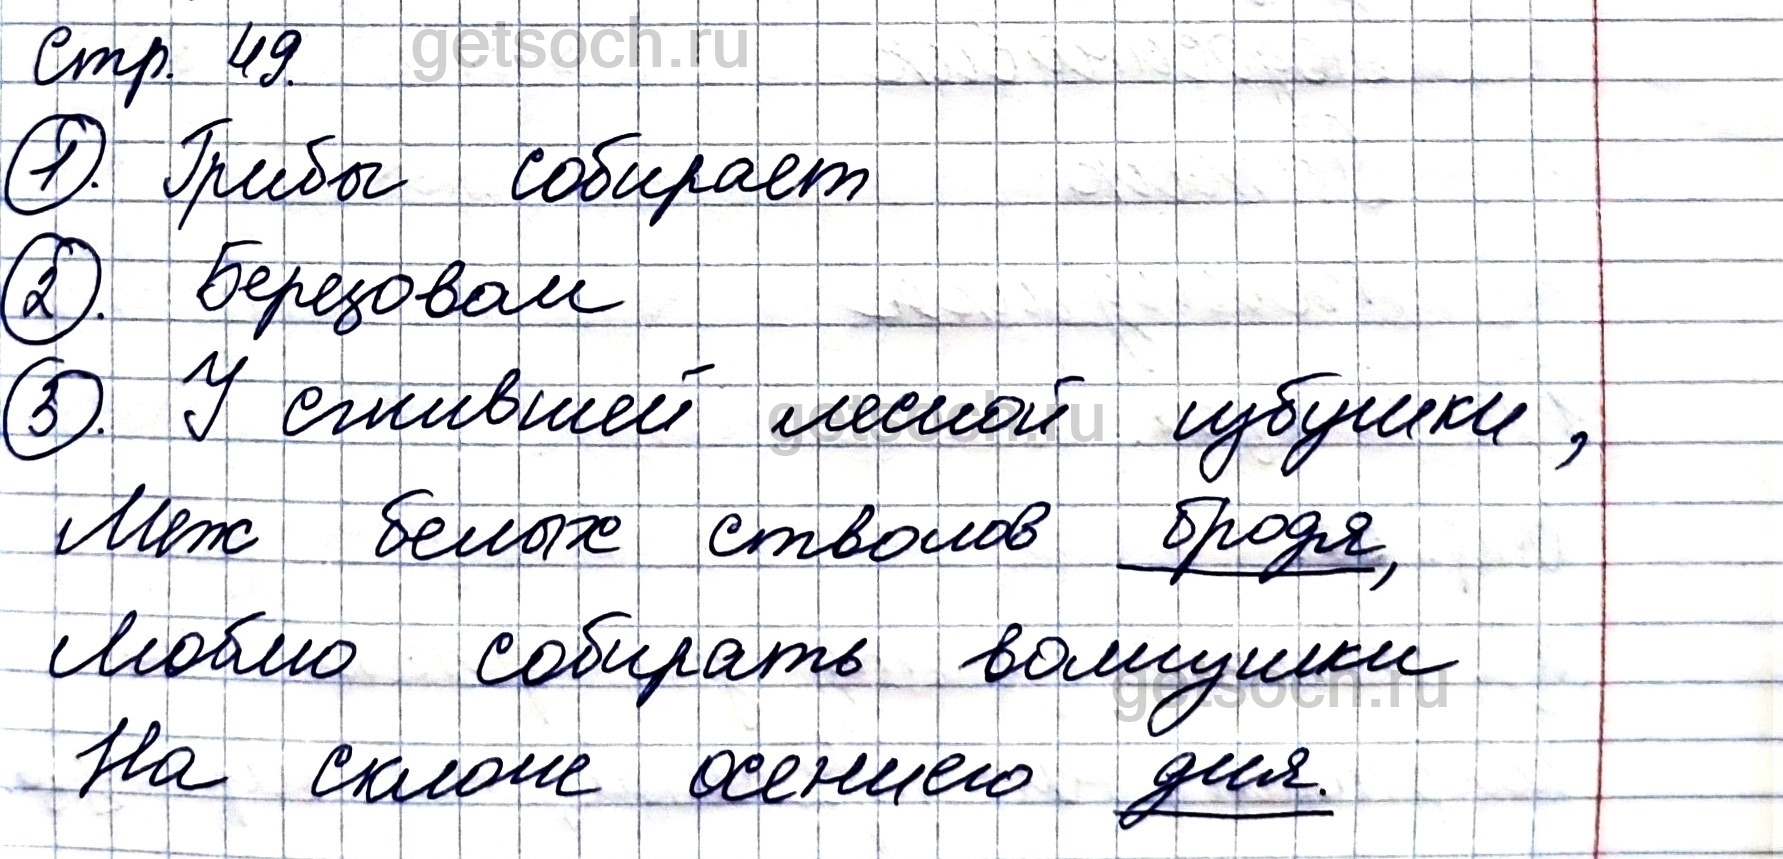 Стр. 49. getsoch.ru
1. Грибы собирает
2. Березовом
3. У сгнившей лесной избушки,
getsoch.ru
Меж белых стволов бродя,
Люблю собирать волнушки
getsoch.ru
На склоне осеннего дня.